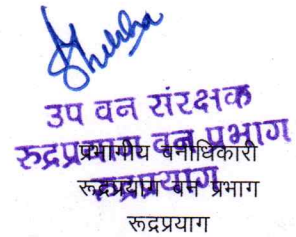 उप वन संरक्षक
रुद्रप्रयाग वन प्रभाग
रुद्रप्रयाग
प्रभागीय वनाधिकारी
रूद्रप्रयाग वन प्रभाग
रूद्रप्रयाग